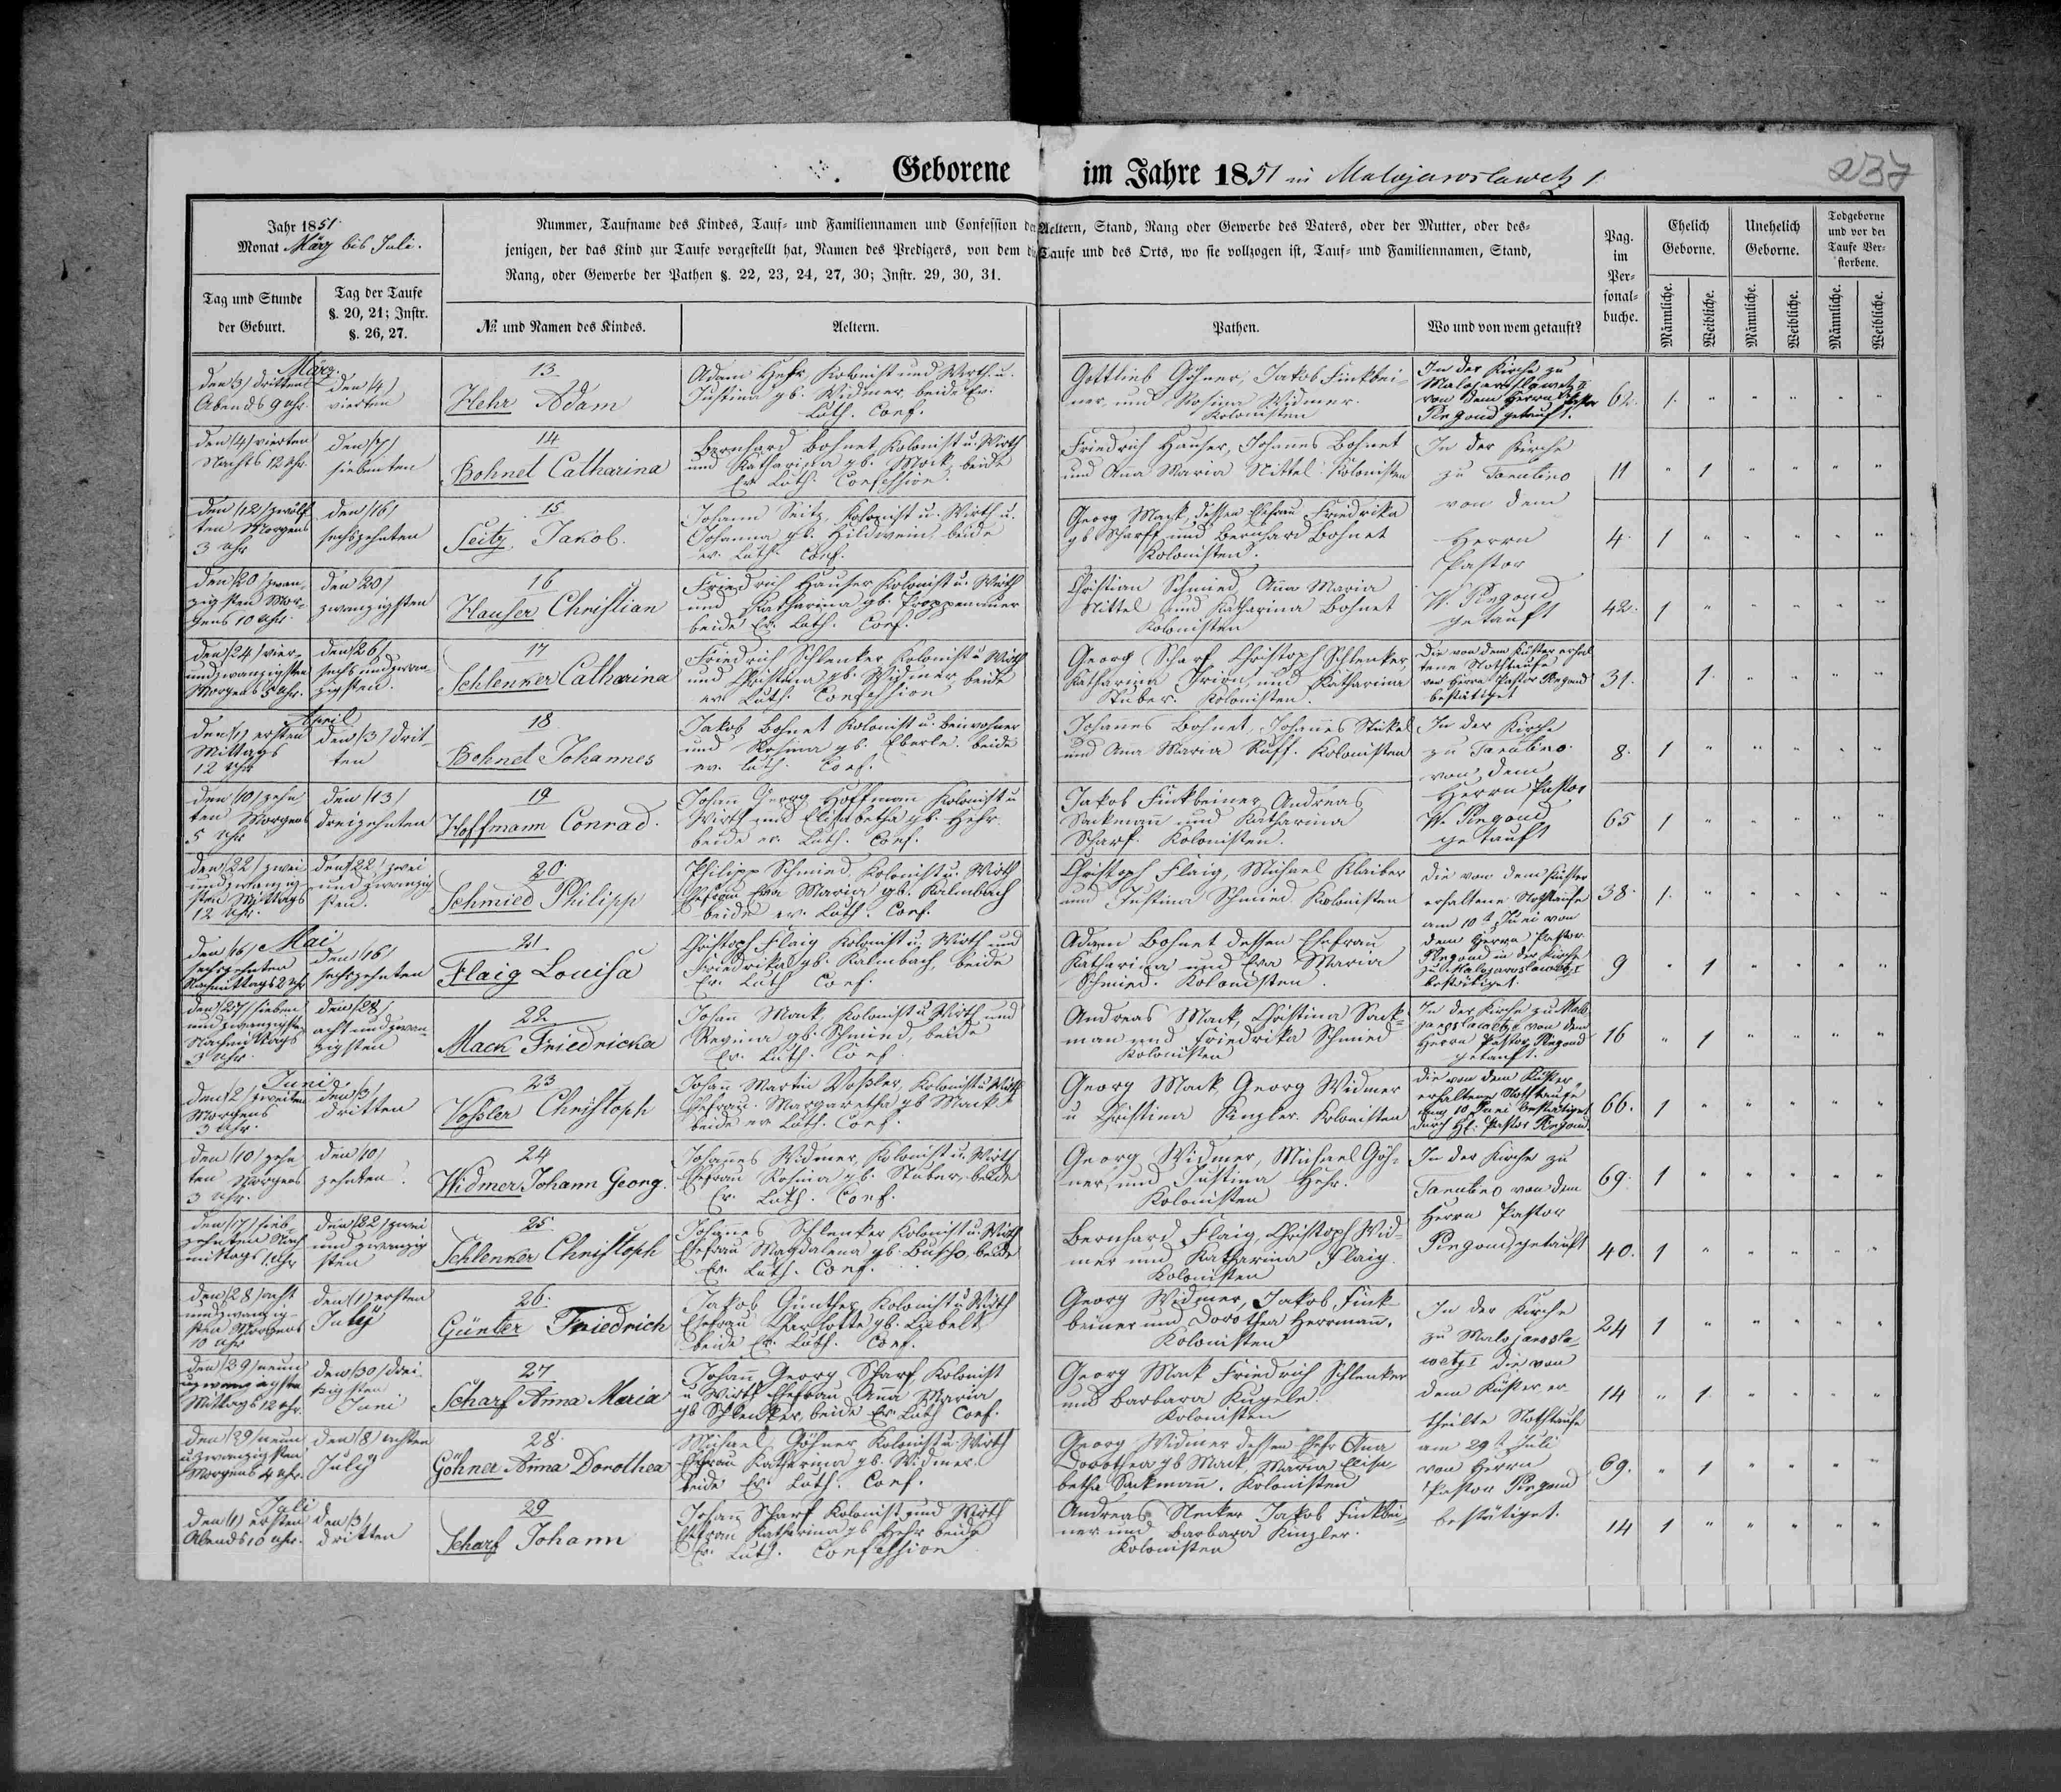 Geborene im Jahre 1851 in Malojaroslawetz 1.
237
Jahr 1851.
Monat März bis Juli.
Nummer, Taufname des Kindes, Tauf- und Familiennamen und Confession der Aeltern, Stand, Rang oder Gewerbe des Vaters, oder der Mutter, oder des-
jenigen, der das Kind zur Taufe vorgestellt hat, Namen des Predigers, von dem die Taufe und des Orts, wo sie vollzogen ist, Tauf- und Familiennamen, Stand,
Rang, oder Gewerbe der Pathen §. 22, 23, 24, 27, 30; Instr. 29, 30, 31.
Tag und Stunde
der Geburt.
Tag der Taufe
§. 20, 21; Instr.
§. 26, 27.
№ und Namen des Kindes.
Aeltern.
Pathen.
Wo und von wem getauft?
Pag.
im
Per-
sonal-
buche.
Ehelich
Geborne.
Unehelich
Geborne.
Todgeborne
und vor der
Taufe Ver-
storbene.
Männliche.
Weibliche.
Männliche.
Weibliche.
Männliche.
Weibliche.
März.
den /3/ dritten
Abends 9 Uhr.
den /4/
vierten
13.
Hehr Adam
Adam Hehr, Kolonist und Wirth u.
Justina gb. Widmer, beide Ev.
Luth. Conf.
Gottlieb Göhner, Jakob Finkbei-
ner und Rosina Widmer.
Kolonisten
In der Kirche zu
Malojaroslawetz I
von dem Herrn Pastor
Pingoud getauft.
62. 1. " " " " "
den /4/ vierten
Nachts 12 Uhr.
den /7/
siebenten
14.
Bohnet Catharina
Bernhard Bohnet, Kolonist u. Wirth
und Katharina gb. Mack, beide
Ev. Luth. Confession.
Friedrich Hauser, Johannes Bohnet
und Anna Maria Nittel. Kolonisten
In der Kirche
zu Tarutino
von dem
Herrn
Pastor
W. Pingoud
getauft
11 " 1 " " " "
den /12/ zwölf-
ten Morgens
3 Uhr
den /16/
sechszehnten
15
Seitz Jakob.
Johann Seitz, Kolonist u. Wirth u.
Johanna gb. Hildwein, beide
ev. Luth. Conf.
Georg Mack, dessen Ehefrau Friedrika
gb Scharff und Bernhard Bohnet
Kolonisten.
4. 1 " " " " "
den /20/ zwan-
zigsten Mor-
gens 10 Uhr.
den /20/
zwanzigsten
16
Hauser Christian
Friedrich Hauser Kolonist u. Wirth
und Katharina gb.
beide Ev. Luth. Conf.
Christian Schmied, Anna Maria
Nittel und Katharina Bohnet
Kolonisten
42. 1 " " " " "
den /24/ vier-
undzwanzigsten
Morgens 5 Uhr.
den /26/
sechs und zwan-
zigsten.
17
Schlenker Catharina
Friedrich Schlenker Kolonist u Wirth
und Christina gb. Widmer, beide
ev. Luth. Confession
Georg Scharf, Christoph Schlenker,
Katharina Irion, und Katharina
Stuber. Kolonisten.
Die von dem Küster erhal-
tene Nothtaufe
von Herrn Pastor Pingoud
bestätiget
31. 1. " " " "
April
den /1/ ersten
Mittags
12 Uhr
den /3/ drit-
ten
18
Bohnet Johannes
Jakob Bohnet Kolonist u. beiwohner
und Rosina gb. Eberle. beide
ev. Luth. Conf.
Johannes Bohnet, Johannes Stickel
und Anna Maria Ruff. Kolonisten
In der Kirche
zu Tarutino.
von dem
Herrn Pastor
W. Pingoud
getauft
8. 1 " " " " "
den /10/ zehn-
ten Morgens
5 Uhr
den /13/
dreizehnten
19
Hoffmann Conrad.
Johann Georg Hoffmann Kolonist u
Wirth und Elisabetha gb. Hehr.
beide ev. Luth. Conf.
Jakob Finkbeiner, Andreas
Sackmann und Katharina
Scharf. Kolonisten.
65 1 " " " " "
den /22/ zwei
und zwanzig-
sten Mittags
12 Uhr.
den /22/ zwei
und zwanzig
sten.
20.
Schmied Philipp
Philipp Schmied, Kolonist u. Wirth
Ehefrau Eva Maria gb. Kalmbach
beide ev. Luth. Conf.
Christoph Flaig, Michael Klaiber
und Justina Schmied Kolonisten
die von dem Küster
erhaltene Nothtaufe
am 10t Juni von
dem Herrn Pastor
Pingoud in der Kirche
zu Malojaroslawetz I
bestätiget.
38. 1. " " " " "
Mai
den /16/
sechszehnten
Nachmittags 2 Uhr
den /16/
sechszehnten
21
Flaig Louisa
Christoph Flaig Kolonist u. Wirth und
Friedrika gb. Kalmbach, beide
Ev. Luth Conf.
Adam Bohnet dessen Ehefrau
Katharina und Eva Maria
Schmied. Kolonisten.
9 " 1 " " " "
den /27/ sieben
und zwanzigsten
Nachmittags
3 Uhr.
den /28/
acht und zwan-
zigsten
22.
Mack Friedricka
Johann Mack, Kolonist u Wirth und
Regina gb. Schmied, beide
Ev. Luth. Conf
Andreas Mack, Christina Sack-
mann und Friedrika Schmied
Kolonisten
In der Kirche zu Malo-
jaroslawetz I von dem
Herrn Pastor Pingoud
getauft.
16 " 1 " " " "
Juni
den /2/ zweiten
Morgens
3 Uhr.
den /3/
dritten
23
Voßler Christoph
Johann Martin Voßler, Kolonist u Wirth
Ehefrau. Margaretha gb Mack.
beide ev Luth. Conf.
Georg Mack, Georg Widmer
u Christina Kinzler. Kolonisten
die von dem Küster
erhaltene Nothtaufe
am 10 Juni bestätiget
durch H: Pastor Pingoud
66. 1 " " " " "
den /10/ zehn
ten Morgens
3 Uhr.
den /10/
zehnten.
24
Widmer Johann Georg.
Johannes Widmer, Kolonist u. Wirth
Ehefrau Rosina gb. Stuber, beide
Ev. Luth. Conf.
Georg Widmer, Michael Göh-
ner, und Justina Hehr.
Kolonisten
In der Kirche zu
Tarutino von dem
Herrn Pastor
Pingoud, getauft
69. 1 " " " " "
den /17/ sieb-
zehnten Nach
mittags 1 Uhr
den /22/ zwei
und zwanzig
sten
25.
Schlenker Christoph
Johannes Schlenker Kolonist u. Wirth
Ehefrau Magdalena gb. beide
Ev. Luth. Conf.
Bernhard Flaig, Christoph Wid-
mer und Katharina Flaig.
Kolonisten
40. 1 " " " " "
den /28/ acht
und zwanzig-
sten Morgens
10 Uhr
den /1/ ersten
July
26.
Günter Friedrich
Jakob Günther Kolonist u Wirth
Ehefrau Charlotte gb. Liebelt
beide Ev. Luth. Conf.
Georg Widmer, Jakob Fink-
beiner und Dorothea Herrmann.
Kolonisten
In der Kirche
zu Malojarosla-
wetz I die von
dem Küster er
theilte Nothtaufe
am 29t Juli
von Herrn
Pastor Pingoud
bestätiget.
24 1 " " " " "
den /29/ neun
u zwanzigsten
Mittags 12 Uhr.
den /30/ drei-
ßigsten
Juni
27
Scharf Anna Maria
Johann Georg Scharf, Kolonist
u Wirth Ehefrau Anna Maria
gb Schlenker, beide Ev. Luth Conf.
Georg Mack Friedrich Schlenker
und Barbara Kugele.
Kolonisten
14 " 1. " " " "
den /29/ neun
u zwanzigsten
Morgens 4 Uhr.
den /8/ achten
July
28.
Göhner Anna Dorothea
Michael Göhner Kolonist u. Wirth
Ehefrau Katharina gb. Widmer.
beide Ev. Luth. Conf.
Georg Widmer dessen Ehefr Anna
Dorothea gb Mack, Maria Elisa-
betha Sackmann. Kolonisten
69. " 1 " " " "
Juli
den /1/ ersten
Abends 10 Uhr.
den /3/
dritten
29
Scharf Johann
Johann Scharf Kolonist und Wirth
Ehefrau Katharina gb Hehr beide
Ev. Luth. Confession
Andreas Necker Jakob Finkbei-
ner und Barbara Kinzler.
Kolonisten
14 1 " " " " "